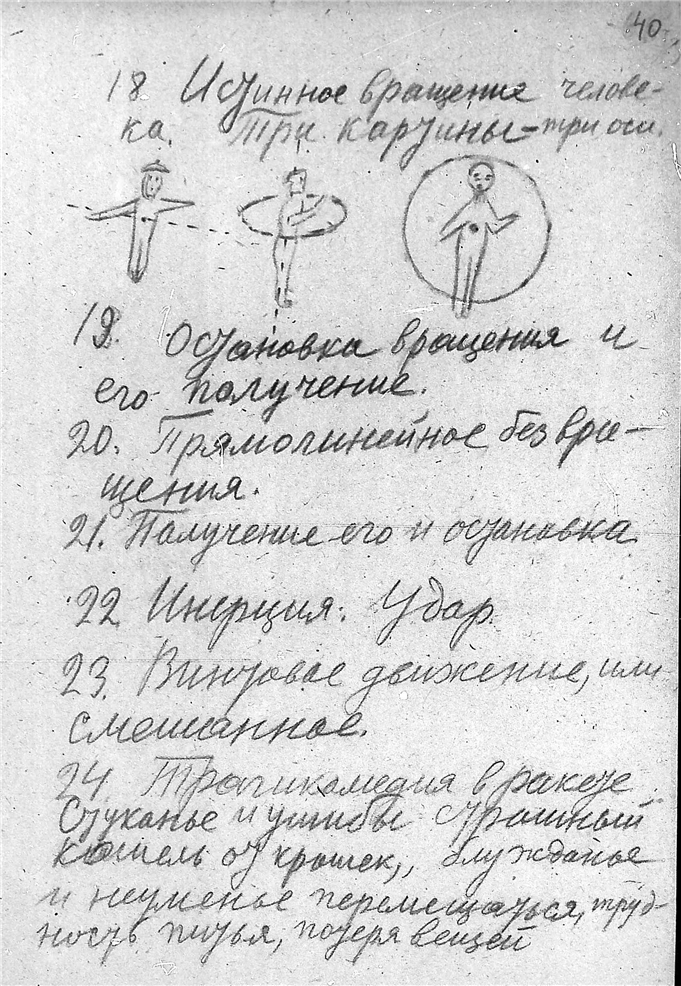 40
18 Истинное вращение челове-
ка. Три картины – три оси.
19. Остановка вращения и
его получение.
20. Прямолинейное без вра-
щения.
21. Получение его и остановка
22 Инерция. Удар.
23. Винтовое движение, или
смешанное.
24 Трагикомедия в ракете
Стуканье и ушибы Страшный
кашель от крошек, блужданье
и неуменье перемещаться, труд-
ность питья, потеря вещей